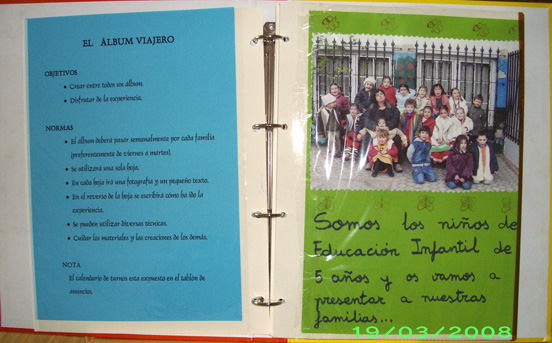 EL ÁLBUM VIAJERO
OBJETIVOS
• Crear entre todos un álbum.
• Disfrutar de la experiencia.
NORMAS
• El álbum deberá pasar semanalmente por cada familia
(preferentemente de viernes a martes).
• Se utilizará una sola hoja.
• En cada hoja irá una fotografía y un pequeño texto.
• En el reverso de la hoja se escribirá cómo ha ido la
experiencia.
• Se pueden utilizar diversas técnicas.
• Cuidar los materiales y las creaciones de los demás.
NOTA
El calendario de turnos esta expuesto en el tablón de
anuncios.
Somos los niños de
Educación Infantil de
5 años y os vamos a
presentar a nuestras
familias...
19/03/2008